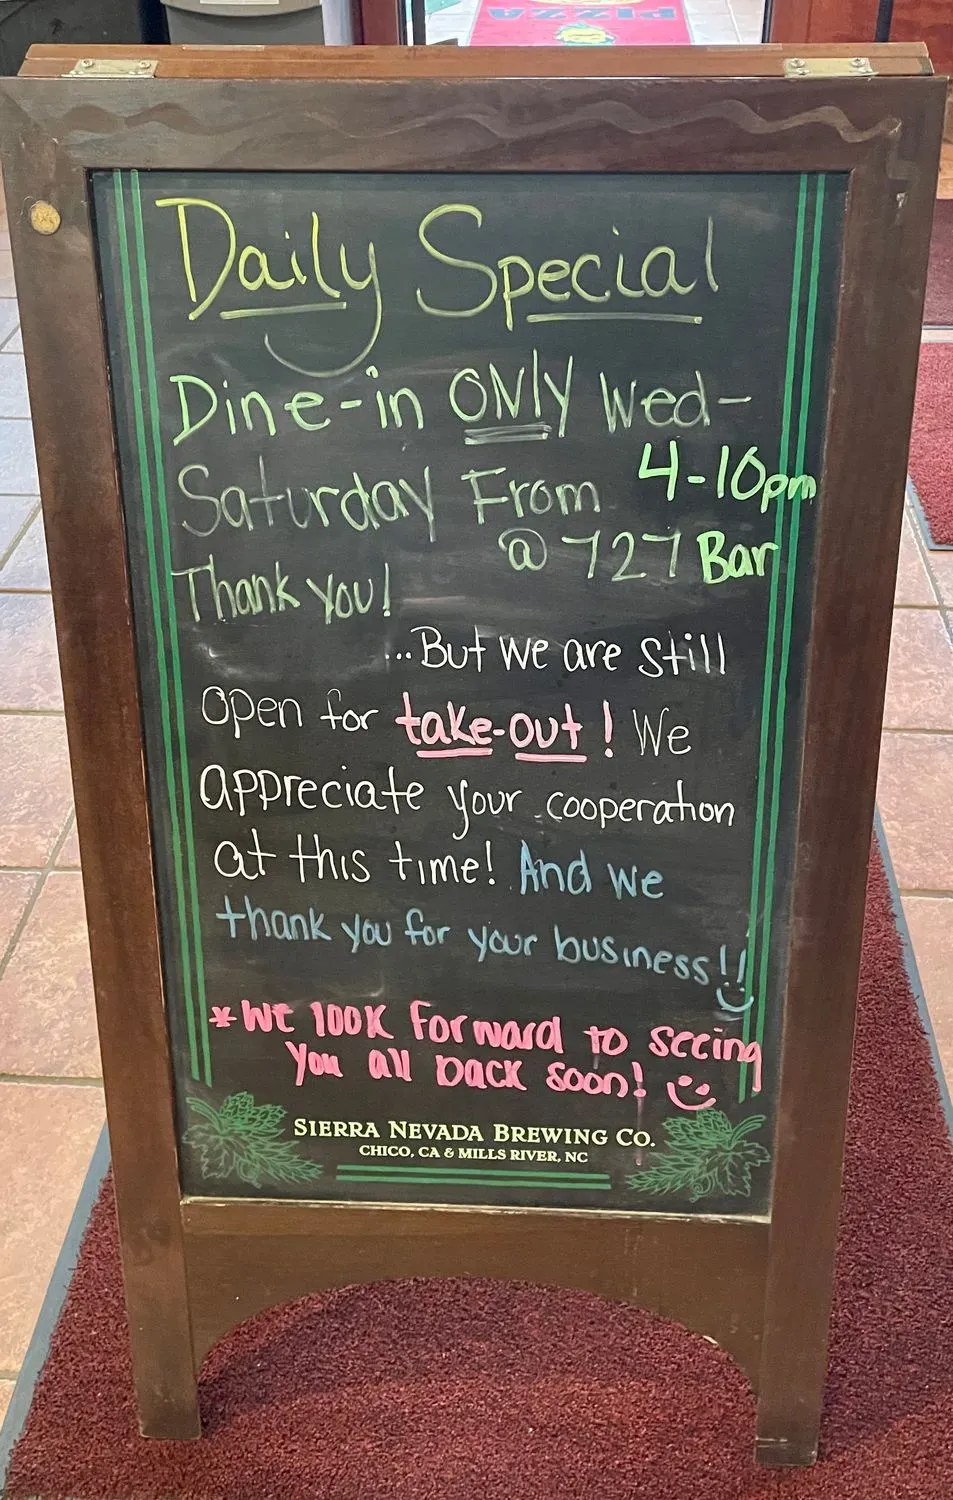 PIZZA
Daily Special
Dine-in ONly Wed-
Saturday From 4-10pm
@ 727 Bar
Thank you!
...But we are still
open for take-out! We
appreciate your cooperation
at this time! And we
thank you for your business!!
*We look forward to seeing
you all back soon!
SIERRA NEVADA BREWING CO.
CHICO, CA & MILLS RIVER, NC